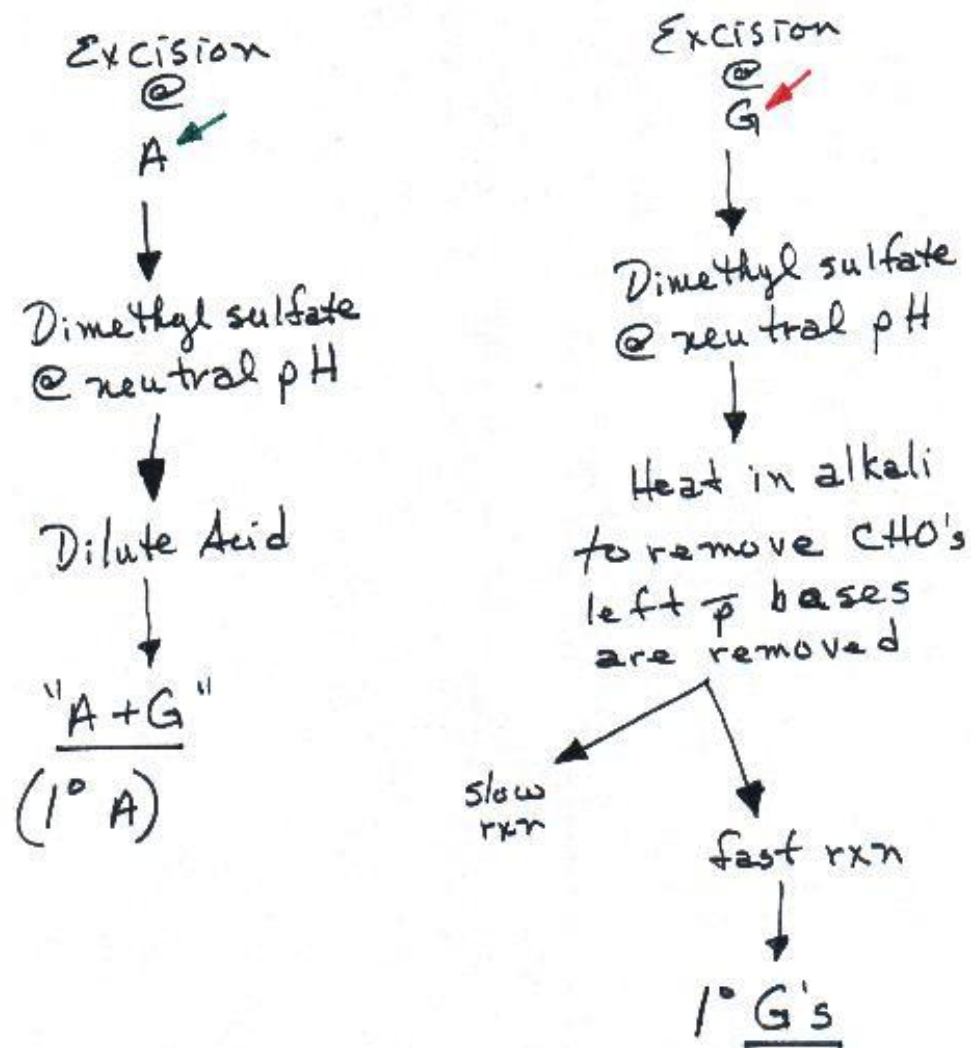 Excision
@
A
Dimethyl sulfate
@ neutral pH
Dilute Acid
"A + G"
(1° A)
Excision
@
G
Dimethyl sulfate
@ neutral pH
Heat in alkali
to remove CHO's
left p̄ bases
are removed
slow
rxn
fast rxn
1° G's